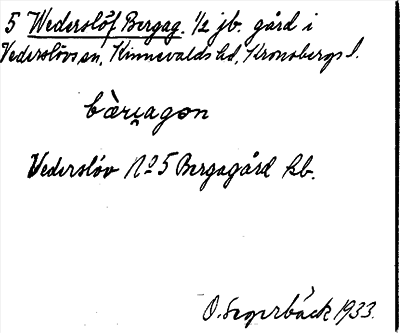 5 Wederslöf Bergag. 1/2 jb. gård i
Vederslövs sn, Kinnevalds hd, Kronobergs l.
bær̯agon
Vederslöv No 5 Bergagård kb.
O. Segerbäck 1933.